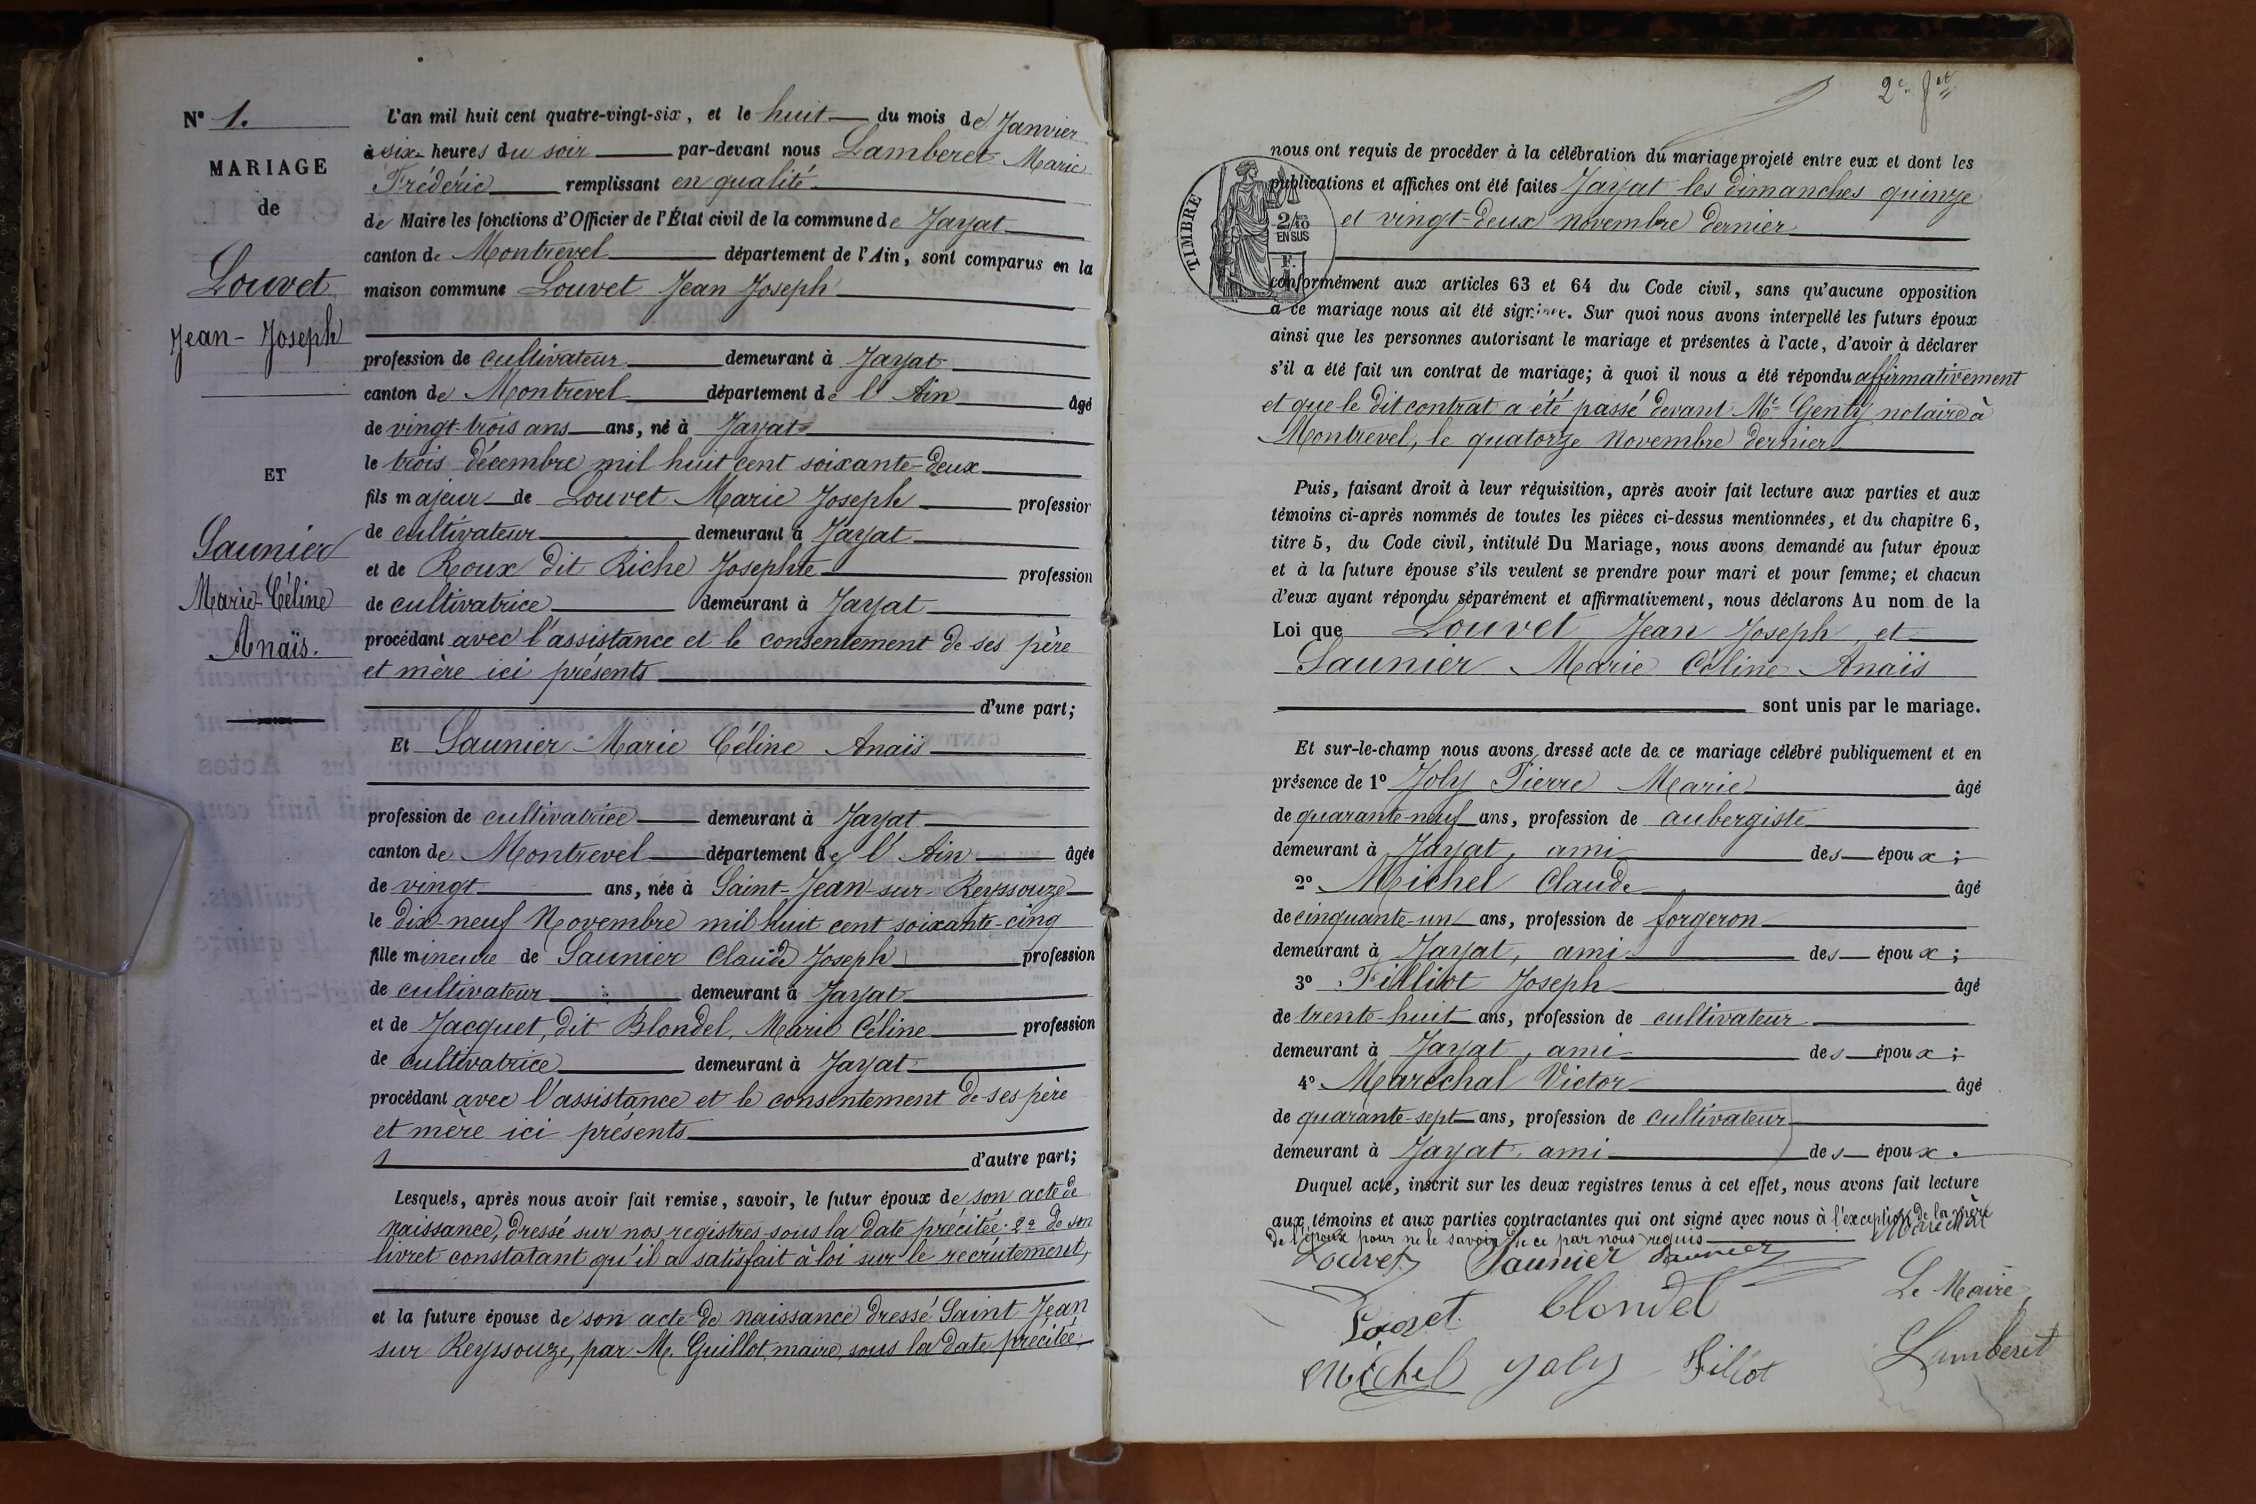 N° 1.
MARIAGE
de
Louvet
Jean-Joseph
ET
Saunier
Marie-Céline
Anaïs.
L'an mil huit cent quatre-vingt-six, et le huit du mois de Janvier
à six heures du soir par-devant nous Lamberet Marie
Frédéric remplissant en qualité
de Maire les fonctions d'Officier de l'État civil de la commune de Jayat
canton de Montrevel département de l'Ain, sont comparus en la
maison commune Louvet Jean Joseph
profession de cultivateur demeurant à Jayat
canton de Montrevel département de l'Ain âgé
de vingt-trois ans ans, né à Jayat
le trois décembre mil huit cent soixante-deux
fils majeur de Louvet Marie Joseph profession
de cultivateur demeurant à Jayat
et de Roux dit Riche Josephte profession
de cultivatrice demeurant à Jayat
procédant avec l'assistance et le consentement de ses père
et mère ici présents
d'une part;
Et Saunier Marie Céline Anaïs
profession de cultivatrice demeurant à Jayat
canton de Montrevel département de l'Ain âgée
de vingt ans, née à Saint-Jean-sur-Reyssouze
le dix-neuf Novembre mil huit cent soixante-cinq
fille mineure de Saunier Claude Joseph profession
de cultivateur demeurant à Jayat
et de Jacquet, dit Blondel, Marie Céline profession
de cultivatrice demeurant à Jayat
procédant avec l'assistance et le consentement de ses père
et mère ici présents
d'autre part;
Lesquels, après nous avoir fait remise, savoir, le futur époux de son acte de
naissance, dressé sur nos registres sous la date précitée: 2° de son
livret constatant qu'il a satisfait à loi sur le recrutement,
et la future épouse de son acte de naissance dressé Saint-Jean
sur Reyssouze, par M. Guillot, maire, sous la date précitée
2e. f et
nous ont requis de procéder à la célébration du mariage projeté entre eux et dont les
publications et affiches ont été faites Jayat les dimanches quinze
et vingt-deux novembre dernier
TIMBRE
2/10
EN SUS
conformément aux articles 63 et 64 du Code civil, sans qu'aucune opposition
à ce mariage nous ait été signifiée. Sur quoi nous avons interpellé les futurs époux
ainsi que les personnes autorisant le mariage et présentes à l'acte, d'avoir à déclarer
s'il a été fait un contrat de mariage; à quoi il nous a été répondu affirmativement
et que le dit contrat a été passé devant Me Genty, notaire à
Montrevel, le quatorze novembre dernier
Puis, faisant droit à leur réquisition, après avoir fait lecture aux parties et aux
témoins ci-après nommés de toutes les pièces ci-dessus mentionnées, et du chapitre 6,
titre 5, du Code civil, intitulé Du Mariage, nous avons demandé au futur époux
et à la future épouse s'ils veulent se prendre pour mari et pour femme; et chacun
d'eux ayant répondu séparément et affirmativement, nous déclarons Au nom de la
Loi que Louvet Jean Joseph, et
Saunier Marie Céline Anaïs
sont unis par le mariage.
Et sur-le-champ nous avons dressé acte de ce mariage célébré publiquement et en
présence de 1° Joly Pierre Marie âgé
de quarante-neuf ans, profession de aubergiste
demeurant à Jayat, ami des époux;
2° Michel Claude âgé
de cinquante-un ans, profession de forgeron
demeurant à Jayat, ami des époux;
3° Filliot Joseph âgé
de trente-huit ans, profession de cultivateur
demeurant à Jayat, ami des époux;
4° Maréchal Victor âgé
de quarante-sept ans, profession de cultivateur
demeurant à Jayat, ami des époux.
Duquel acte, inscrit sur les deux registres tenus à cet effet, nous avons fait lecture
aux témoins et aux parties contractantes qui ont signé avec nous à l'exception de la mère
de l'époux pour ne le savoir de ce par nous requis Maréchal
Louvet Saunier Saunier
Louvet Blondel Le Maire,
Michel Joly Filliot Lamberet